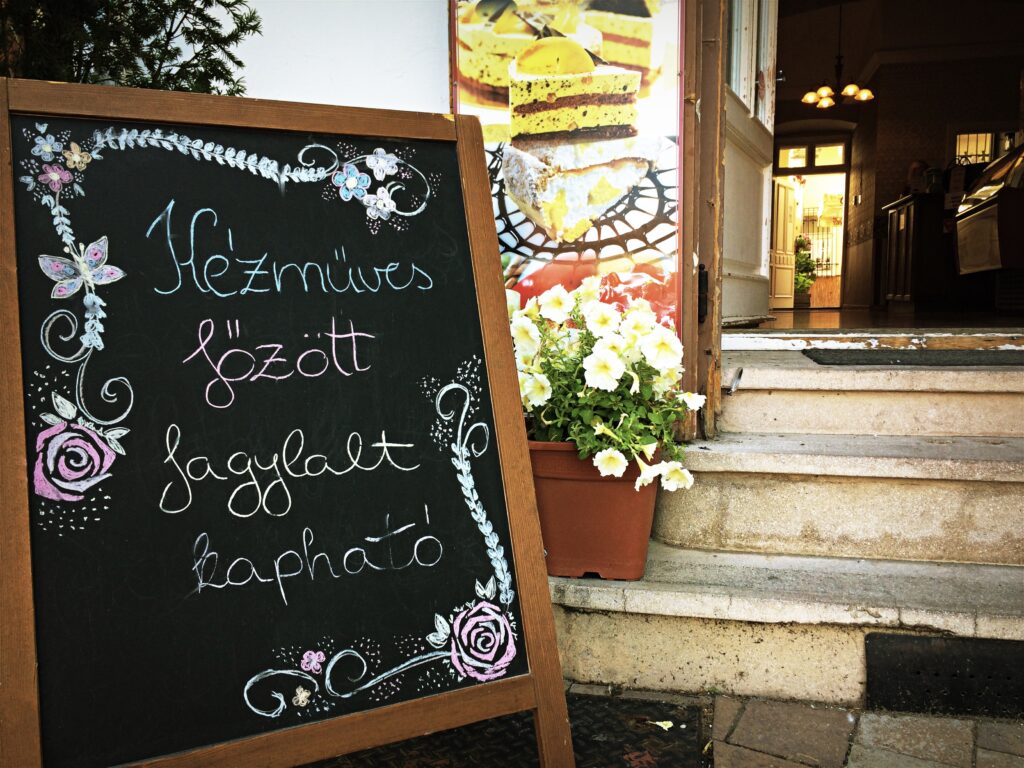 Kézműves
főzött
fagylalt
kapható